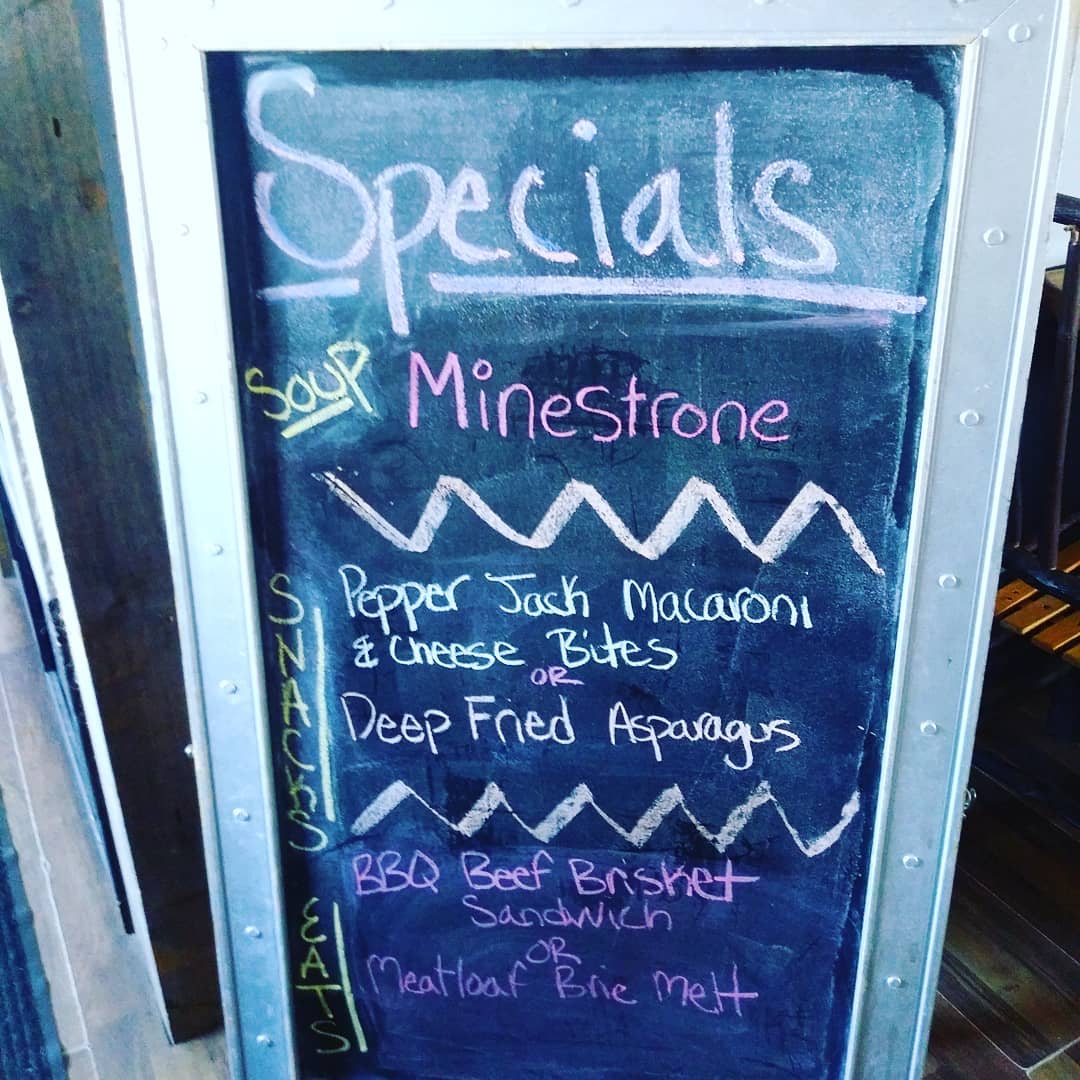 Specials
SOUP Minestrone
SNACKS
Pepper Jack Macaroni
& Cheese Bites
OR
Deep Fried Asparagus
EATS
BBQ Beef Brisket
Sandwich
OR
Meatloaf Brie Melt